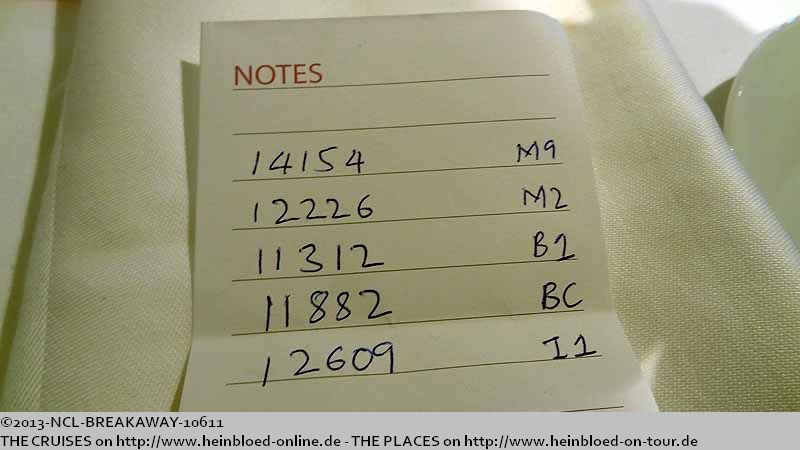 NOTES
14154 M9
12226 M2
11312 B1
11882 BC
12609 I1
©2013-NCL-BREAKAWAY-10611
THE CRUISES on http://www.heinbloed-online.de - THE PLACES on http://www.heinbloed-on-tour.de